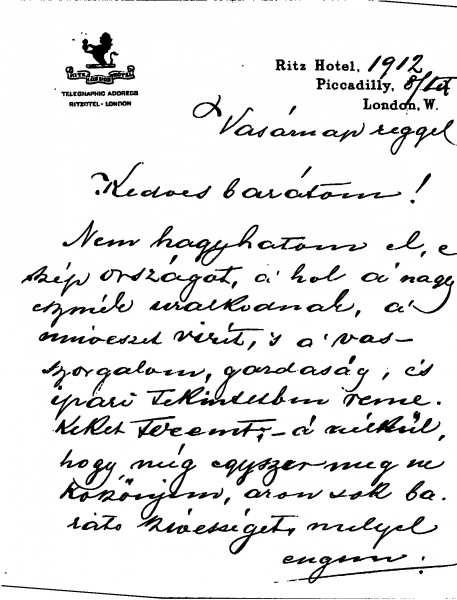 RITZ LONDON HOTEL
TELEGRAPHIC ADDRESS
RITZOTEL - LONDON
Ritz Hotel, 1912
Piccadilly, 8/
London, W.
Vasárnap reggel
Kedves barátom!
Nem hagyhatom el, e
szép országot, a hol a nagy
eszmék uralkodnak, á
müvészet virít, s a vas-
szorgalom, gazdaság, és
ipári tekintetben reme.
keket teremt, - á nélkül,
hogy még egyszer meg ne
köszönjem, azon sok ba.
ráti szivességet, melyel
engem